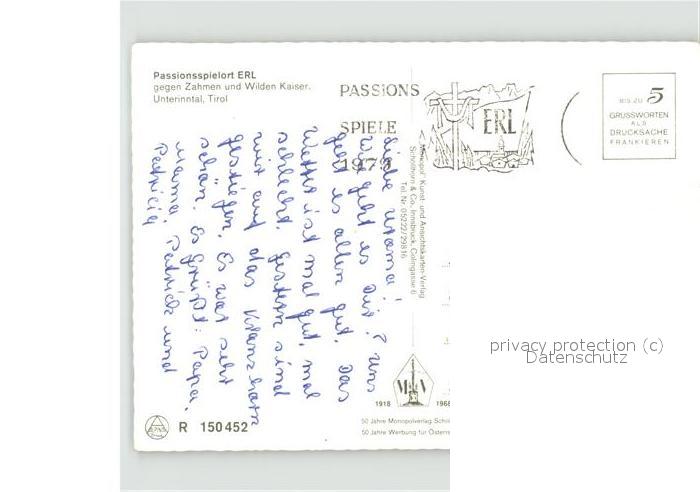 Passionsspielort ERL
gegen Zahmen und Wilden Kaiser.
Unterinntal, Tirol
PASSIONS
SPIELE
1979
ERL
BIS ZU 5
GRUSSWORTEN
ALS
DRUCKSACHE
FRANKIEREN
Liebe Uroma!
Wie geht es Dir? Uns
geht es allen gut. Das
Wetter ist mal gut, mal
schlecht. Gestern sind
wir auf das Kranzhorn
gestiegen. Es war sehr
schön. Es grüßt: Papa,
Mama, Patrick und
Patricia
"Monopol" Kunst- und Ansichtskarten-Verlag
Schöllhorn & Co., Innsbruck, Colingasse 6
Tel. Nr. 05222/29816
1918 1968
R 150452
50 Jahre Monopolverlag
50 Jahre Werbung für
privacy protection (c)
Datenschutz